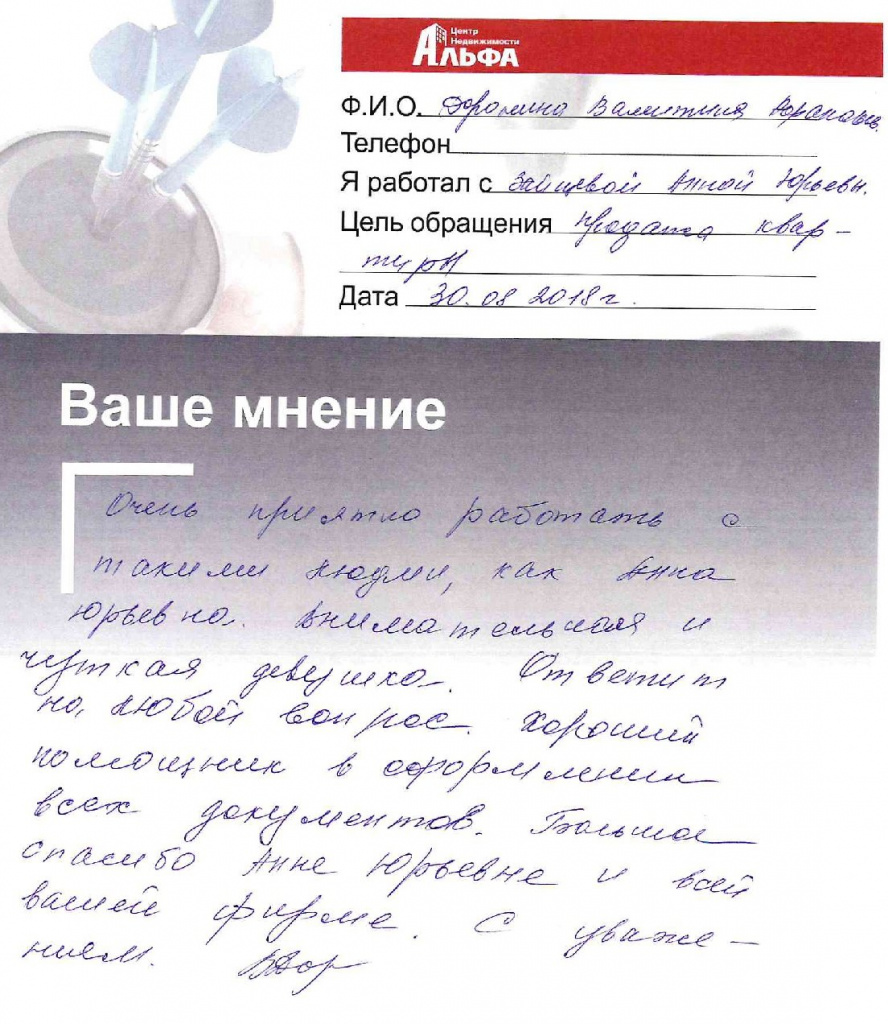 Центр
Недвижимости
АЛЬФА
Ф.И.О. Валентина
Телефон
Я работал с Зайцевой Анной Юрьевн.
Цель обращения продажа квар-
тиры
Дата 30.08.2018 г.
Ваше мнение
Очень приятно работать с
такими людми, как Анна
Юрьевна. Внимательная и
чуткая девушка. Ответит
на любой вопрос. Хороший
помощник в оформлении
всех документов. Большое
спасибо Анне Юрьевне и всей
вашей фирме. С уваже-
нием.